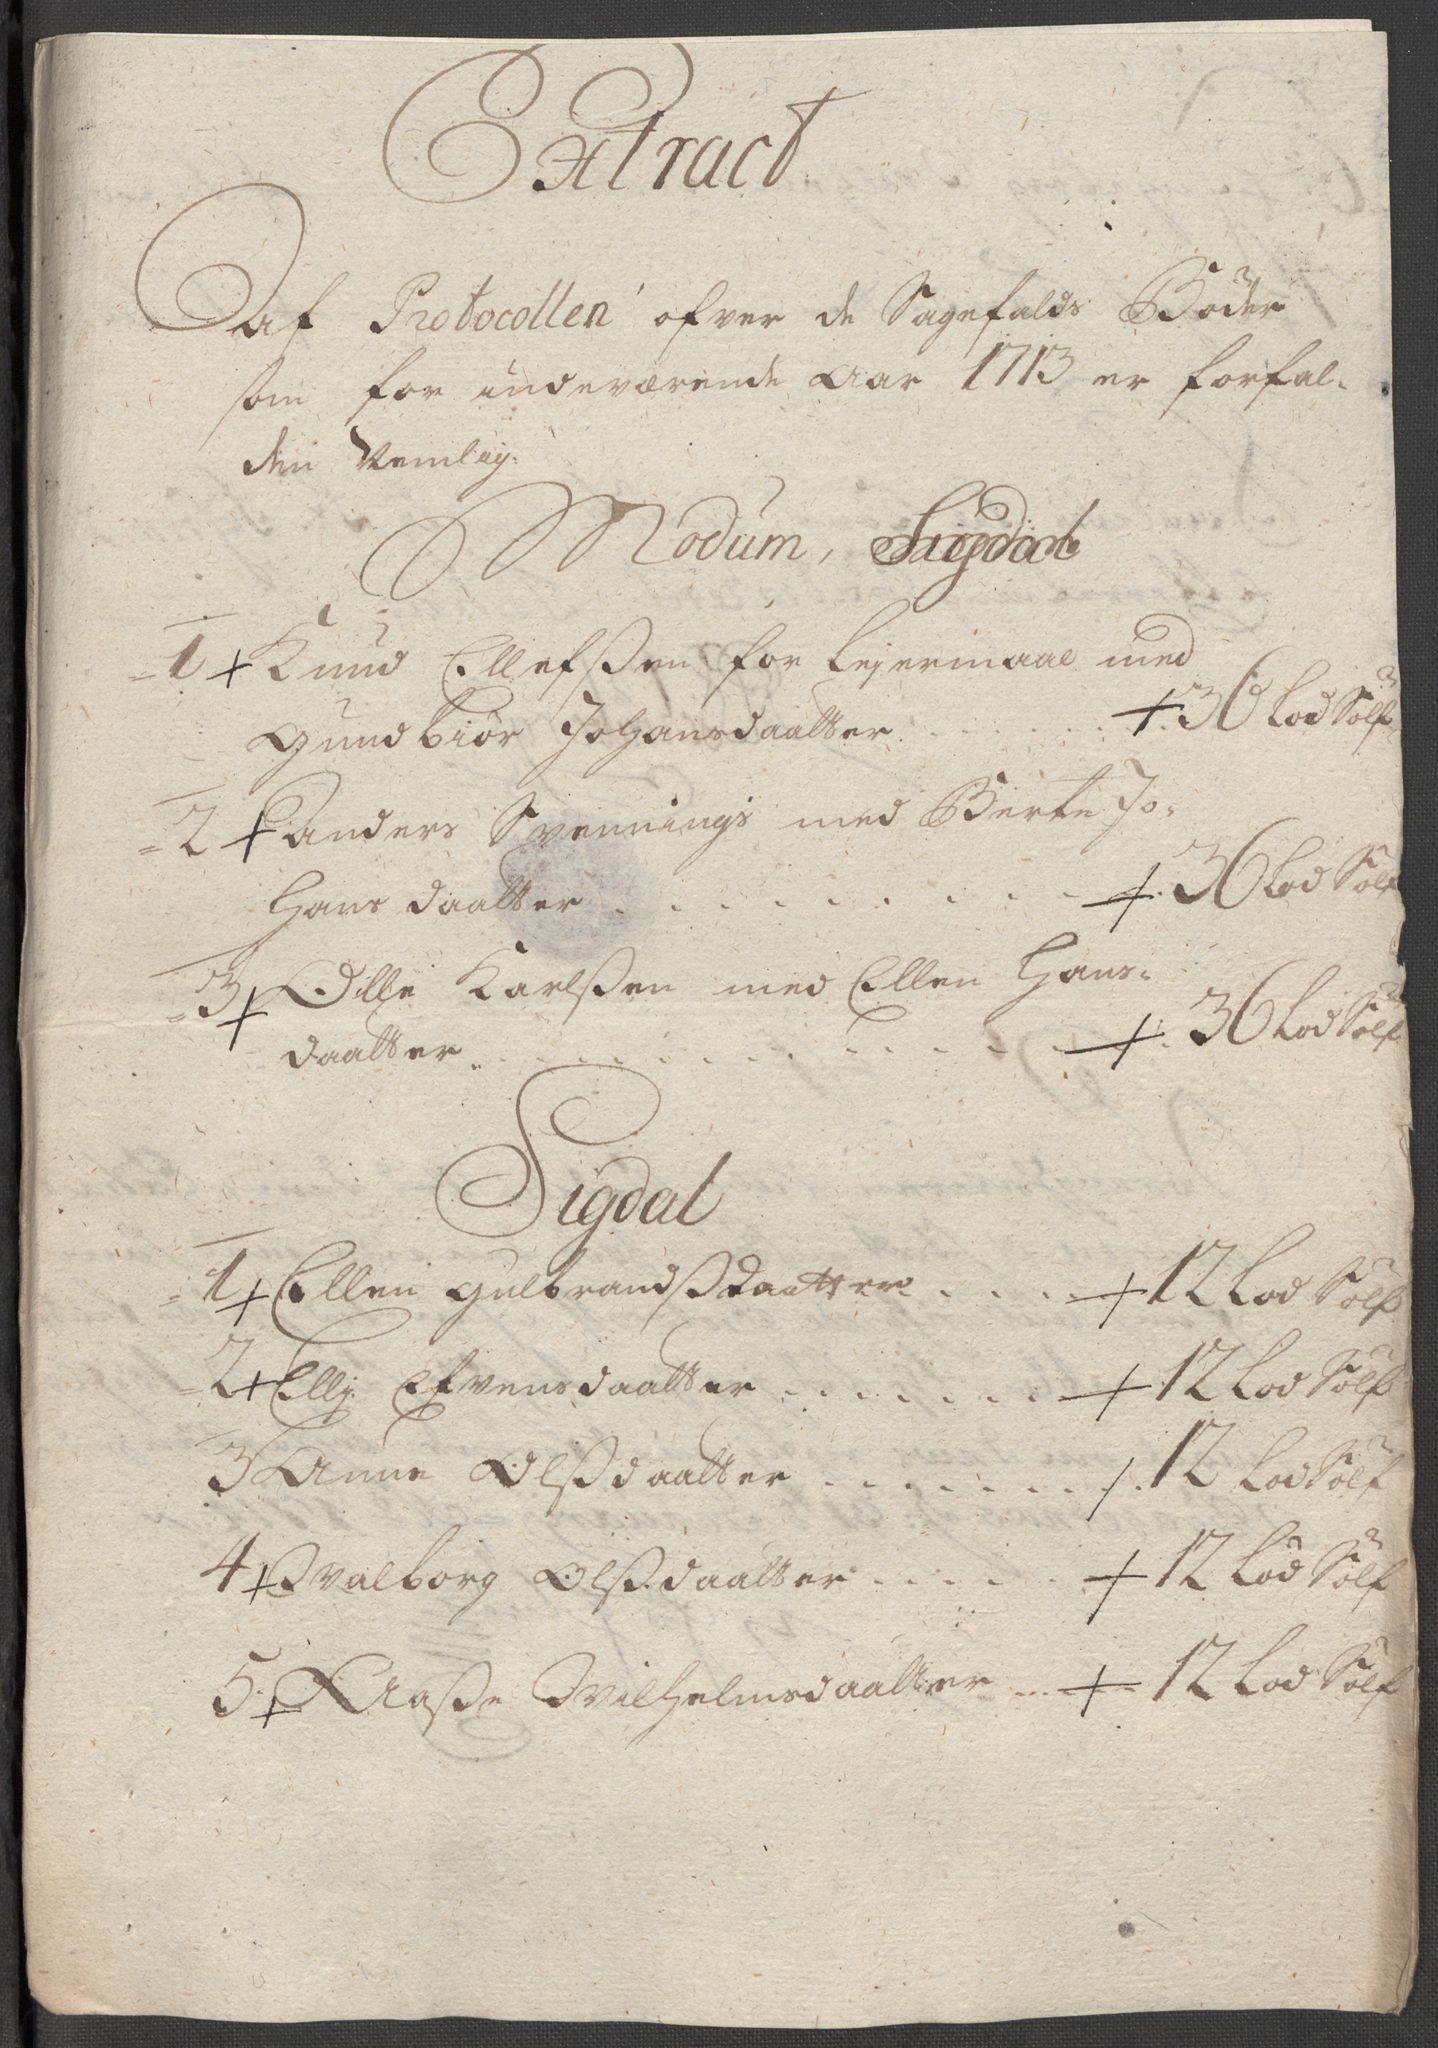 Extract
Af Protocollen ofver de Sagefalds Bøder
som for indeværende Aar 1713 er forfal-
den Nemlig.
Modum, Sigdal
1 + Knud Ellefsßen for Lejermaal med
Gundbiør Johansdaatter . . . . . . + 36 Lod Sølf
2 + Anders Svennings med Berte Jo-
hans daatter . . . . . . . . . + 36 Lod Sølf
3 + Karlsßen med Ellen Hans-
daatter . . . . . . . . . . . + 36 Lod Sølf
Sigdal
1 + Ellen Gulbrandsßdaatter . . . . + 12 Lod Sølf
2 + Elli Efvensdaatter . . . . . . . + 12 Lod Sølf
3 Anne Olsßdaatter . . . . . . . /. 12 Lod Sølf
4 + Svalborg Olsß.daatter . . . . . + 12 Lod Sølf
5. + Aaße Wilhelmsdaatter . . + 12 Lod Sølf